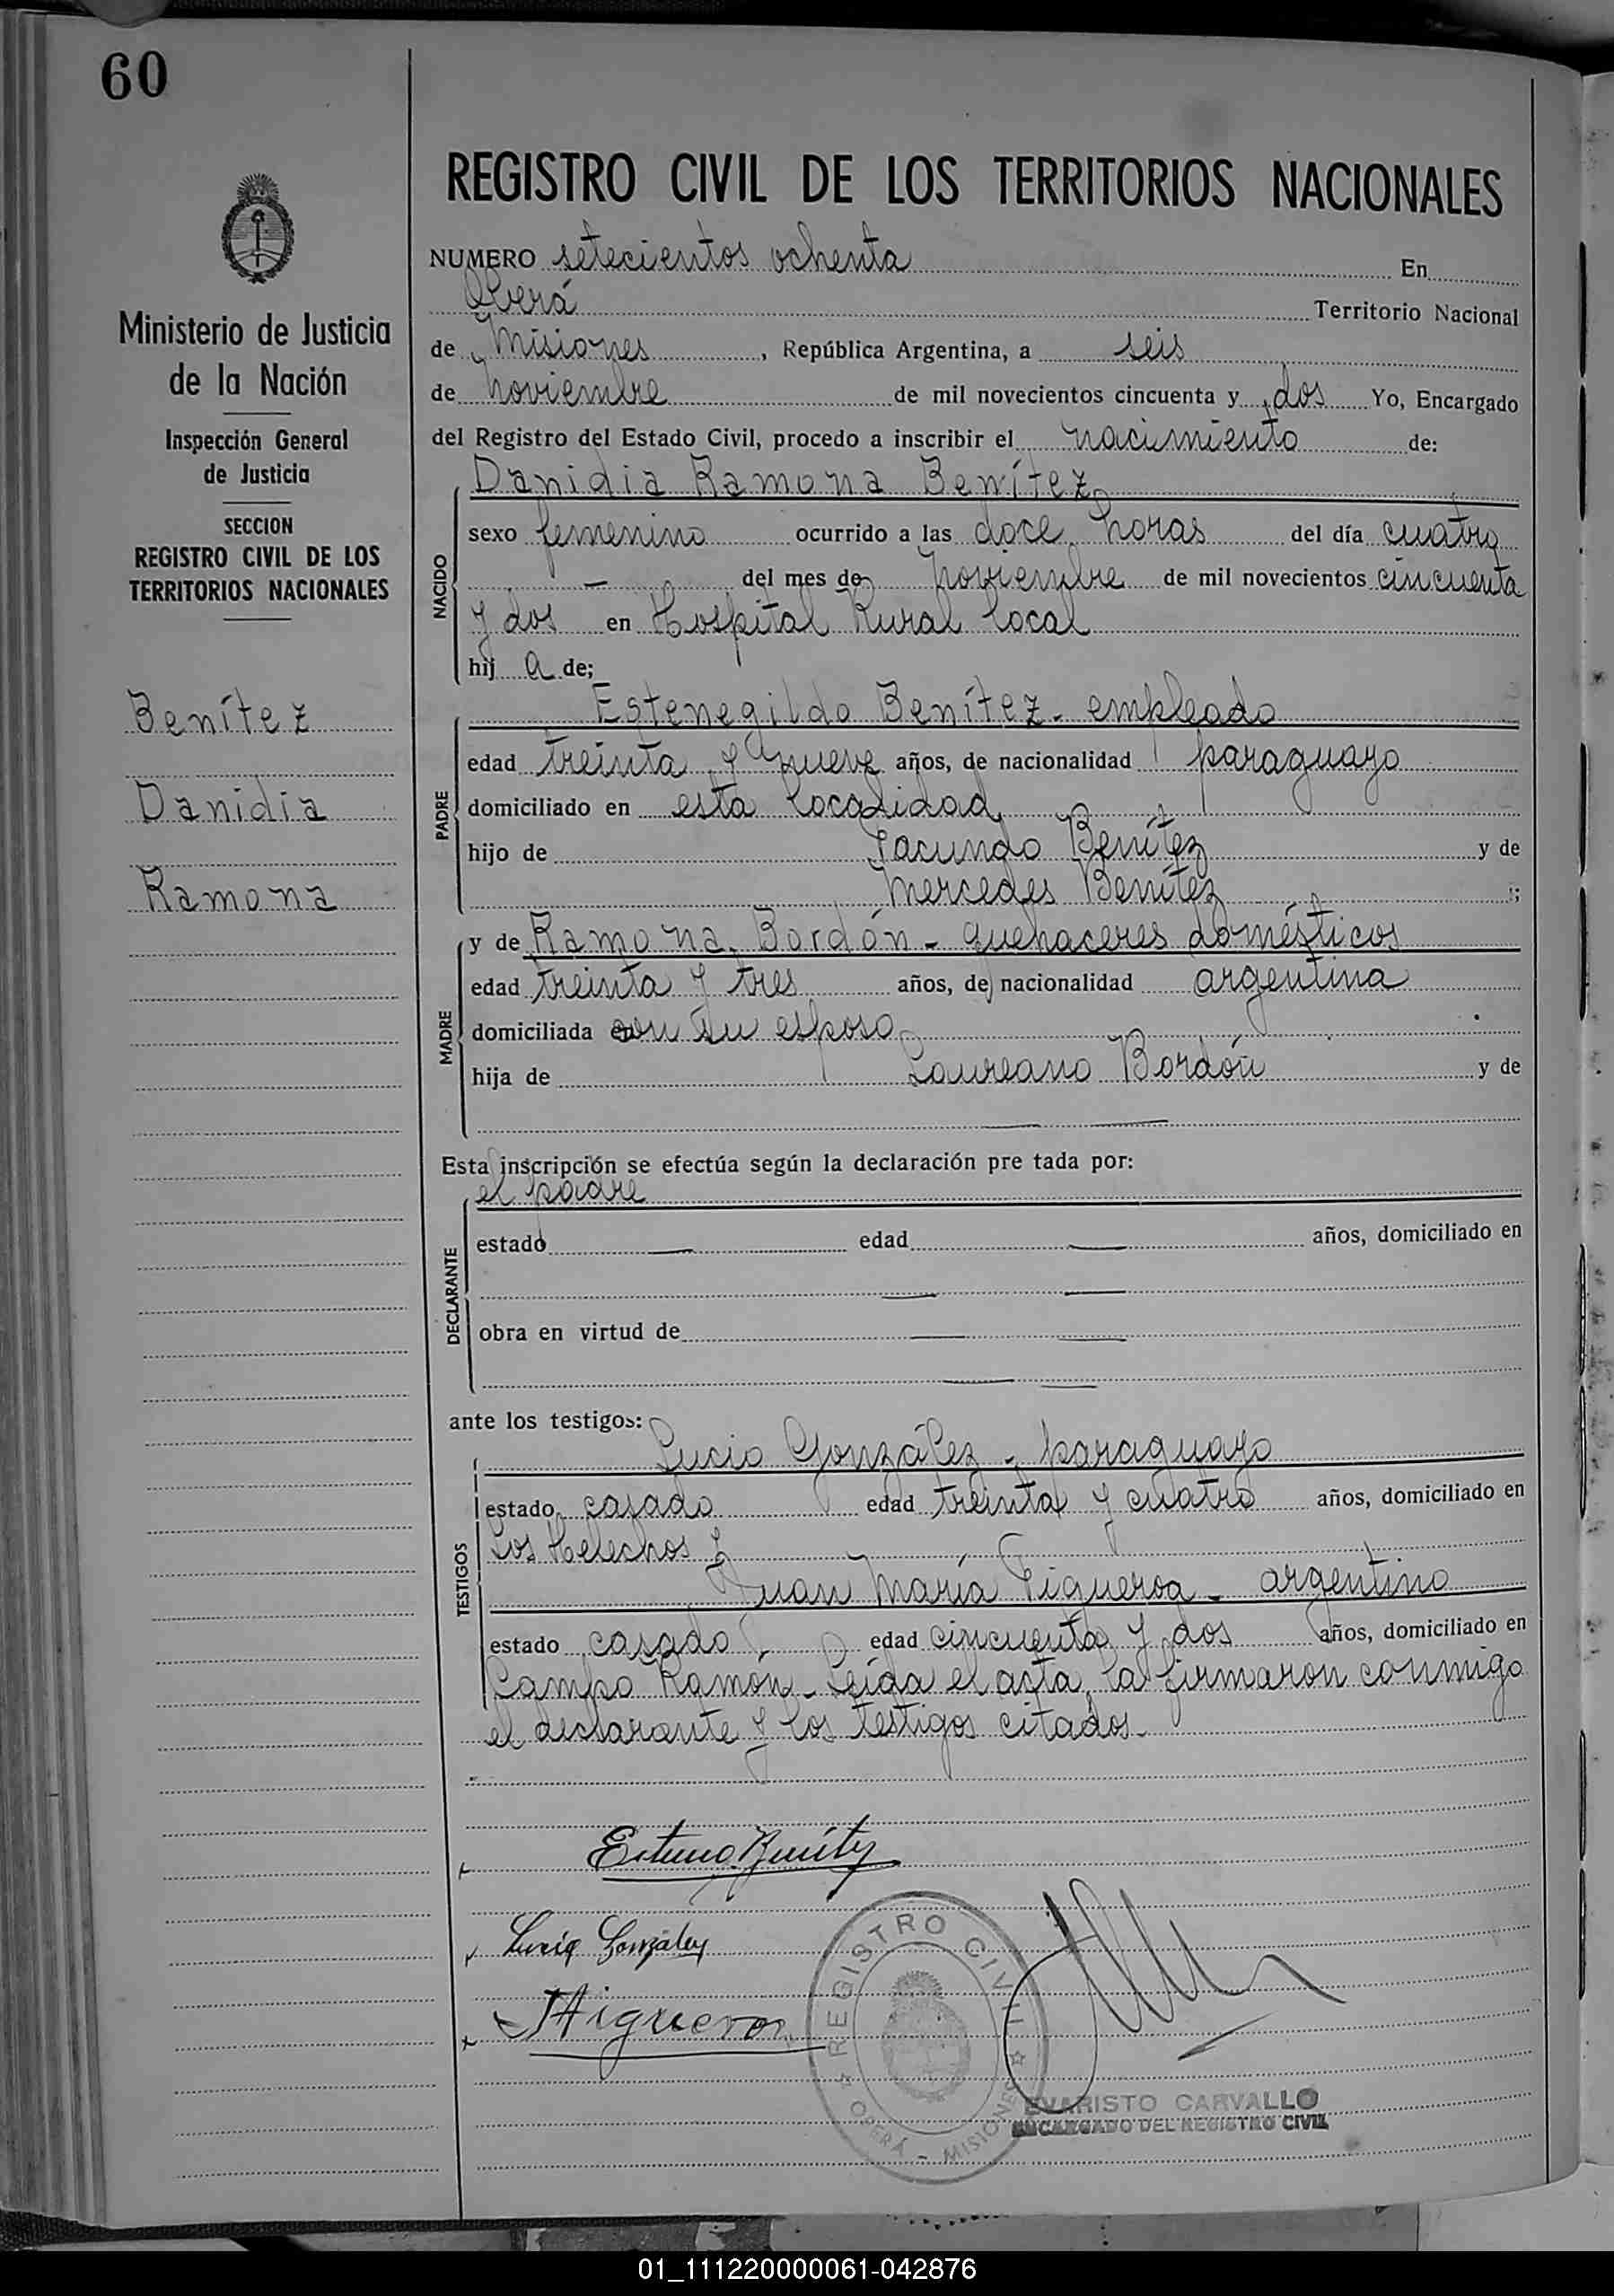 60
REGISTRO CIVIL DE LOS TERRITORIOS NACIONALES
Ministerio de Justicia
de la Nación
Inspección General
de Justicia
SECCION
REGISTRO CIVIL DE LOS
TERRITORIOS NACIONALES
Benítez
Danidia
Ramona
NUMERO setecientos ochenta En
Oberá Territorio Nacional
de Misiones, República Argentina, a seis
de Noviembre de mil novecientos cincuenta y dos Yo, Encargado
del Registro del Estado Civil, procedo a inscribir el nacimiento de:
Danidia Ramona Benítez
NACIDO
sexo femenino ocurrido a las doce horas del día cuatro
— del mes de Noviembre de mil novecientos cincuenta
y dos en Hospital Rural local
hij a de;
Estenegildo Benítez - empleado
PADRE
edad treinta y nueve años, de nacionalidad paraguayo
domiciliado en esta localidad
hijo de Facundo Benítez y de
Mercedes Benítez ;
y de Ramona Bordón - quehaceres domésticos
MADRE
edad treinta y tres años, de nacionalidad argentina
domiciliada con su esposo
hija de Laureano Bordón y de
— —
Esta inscripción se efectúa según la declaración pre tada por:
el padre
DECLARANTE
estado — edad — años, domiciliado en
— —
obra en virtud de — —
— —
ante los testigos:
Lucio González - paraguayo
TESTIGOS
estado casado edad treinta y cuatro años, domiciliado en
Los Helechos y
Juan María Figueroa - argentino
estado casado edad cincuenta y dos años, domiciliado en
Campo Ramón - Leída el acta, la firmaron conmigo
el declarante y los testigos citados.-
Benítez
Lucio González
JMFigueroa
REGISTRO CIVIL
OBERÁ - MISIONES
EVARISTO CARVALLO
ENCARGADO DEL REGISTRO CIVIL
01_111220000061-042876